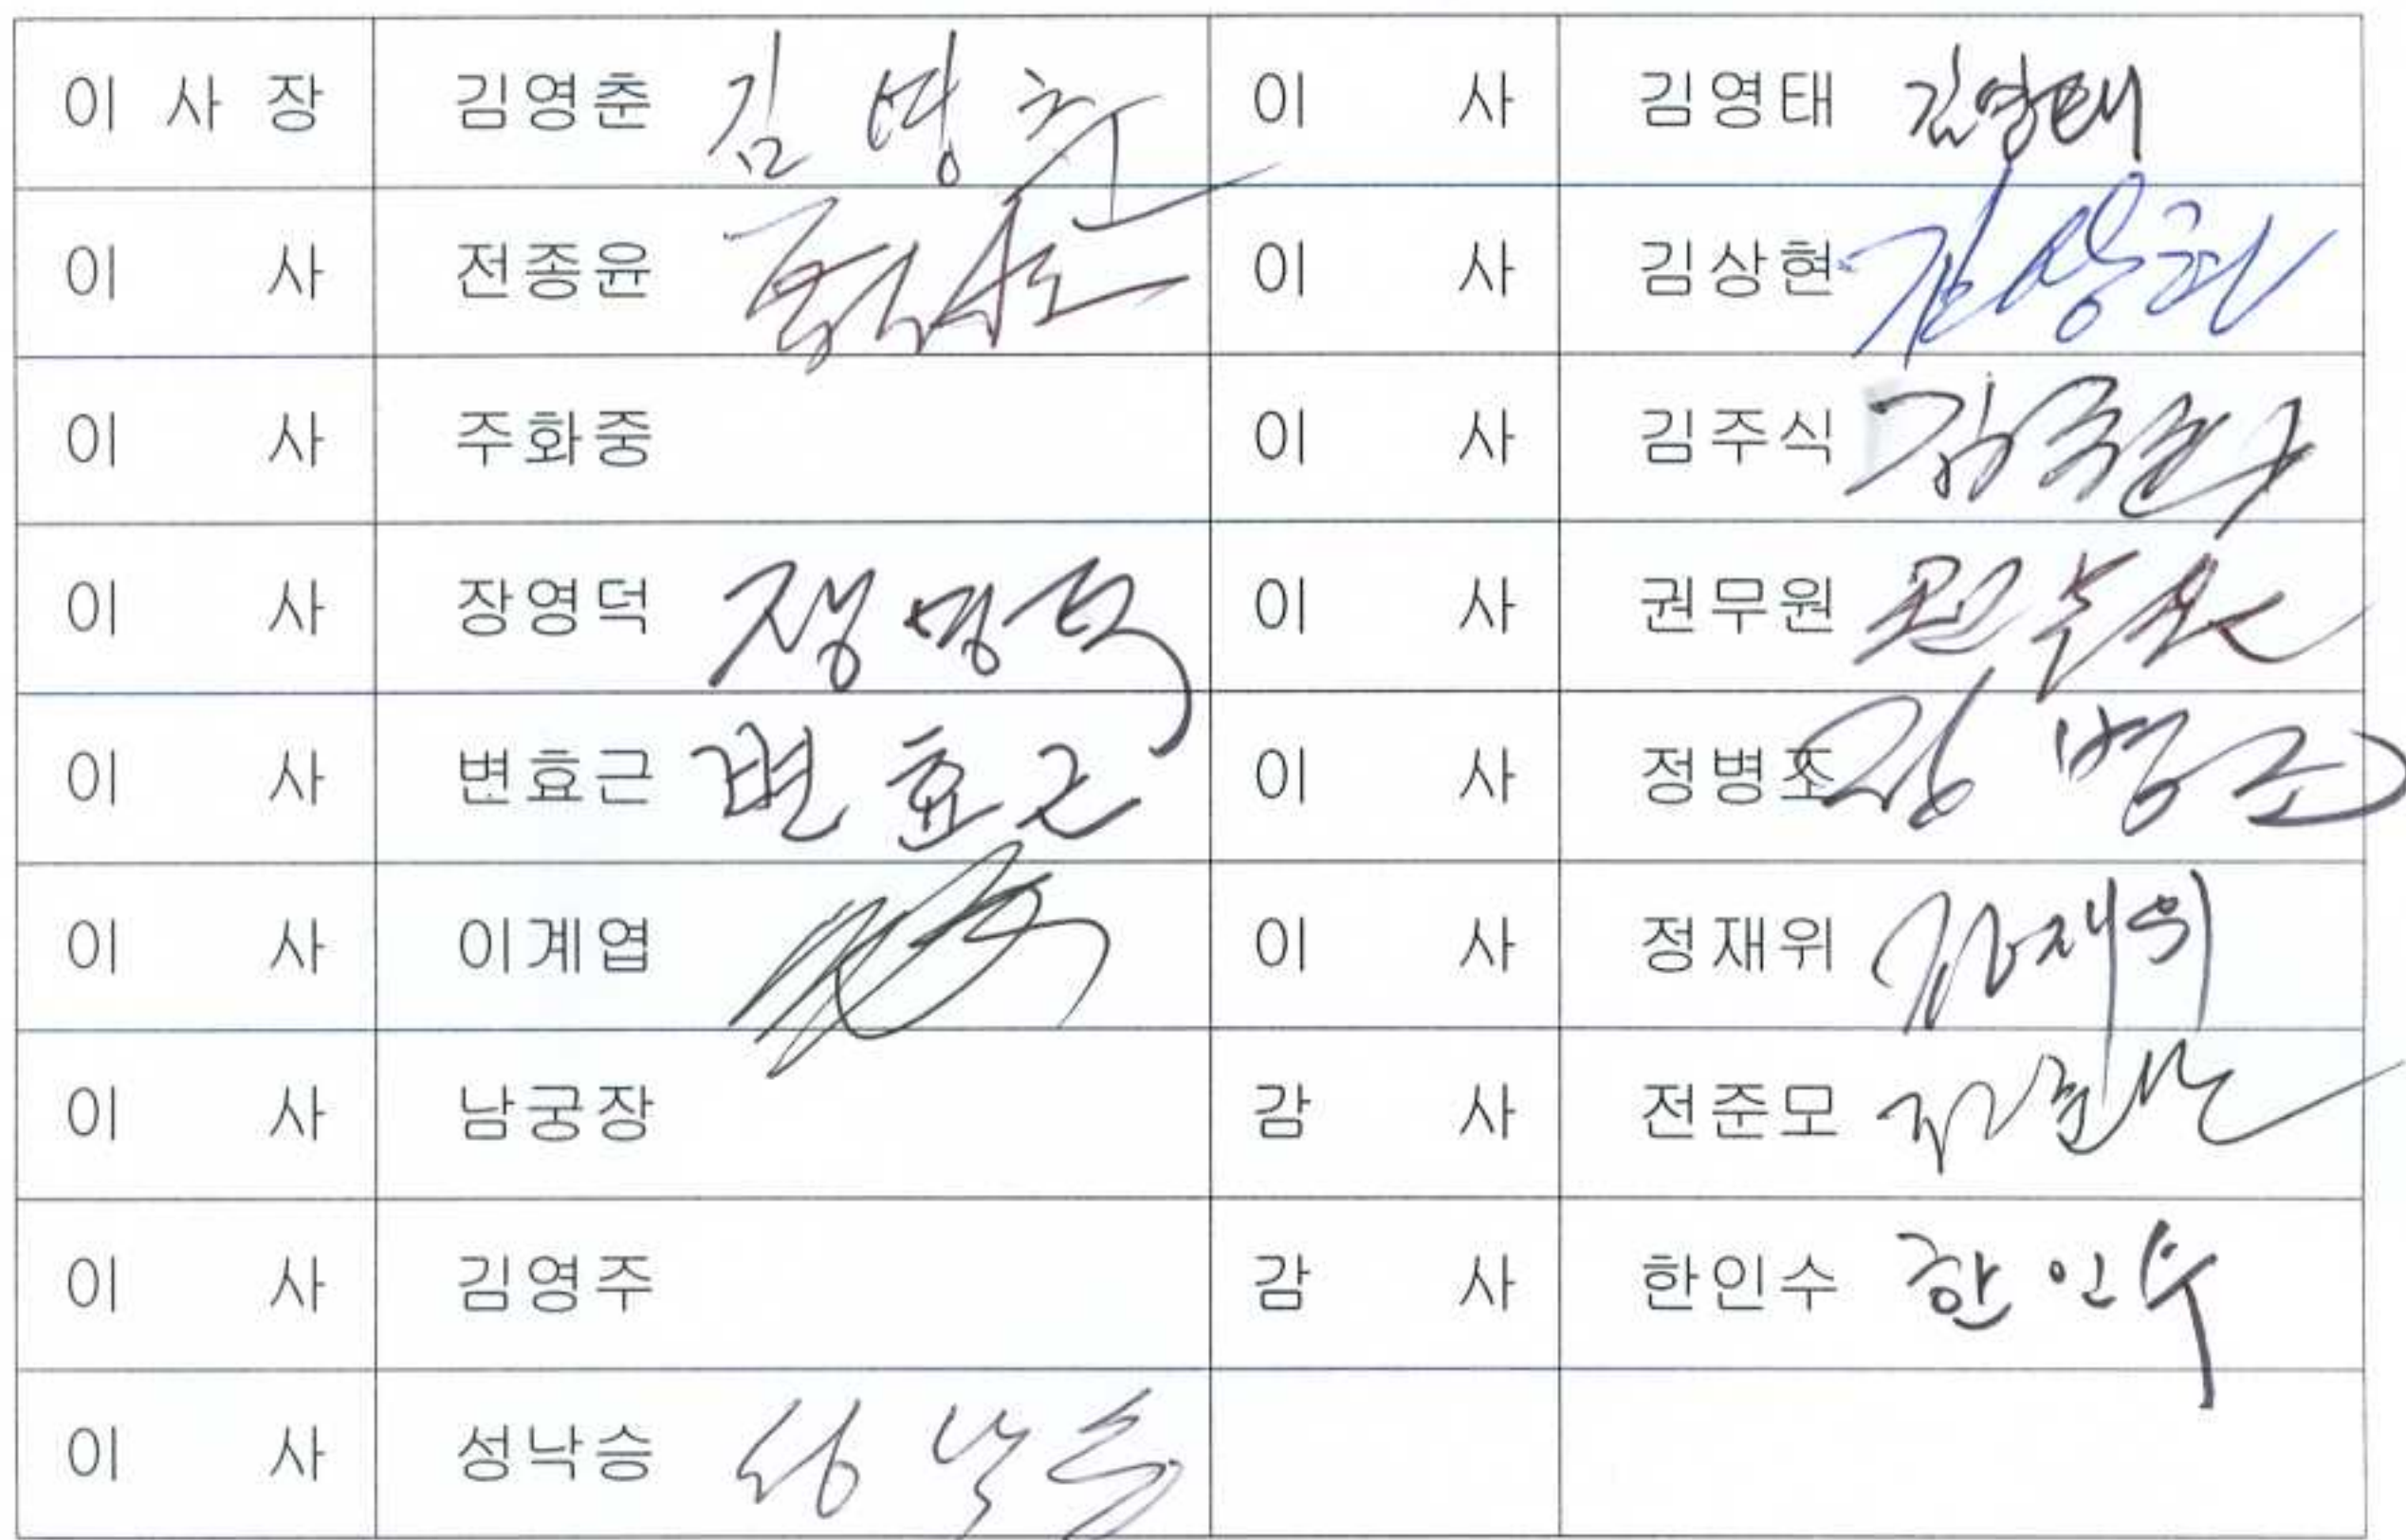 이 사 장 김영춘 김영춘 이 사 김영태 김영태
이 사 전종윤 이 사 김상현 김상현
이 사 주화중 이 사 김주식
이 사 장영덕 장영덕 이 사 권무원
이 사 변효근 변효근 이 사 정병조 정병조
이 사 이계엽 이 사 정재위 정재위
이 사 남궁장 감 사 전준모
이 사 김영주 감 사 한인수 한인수
이 사 성낙승 성낙승